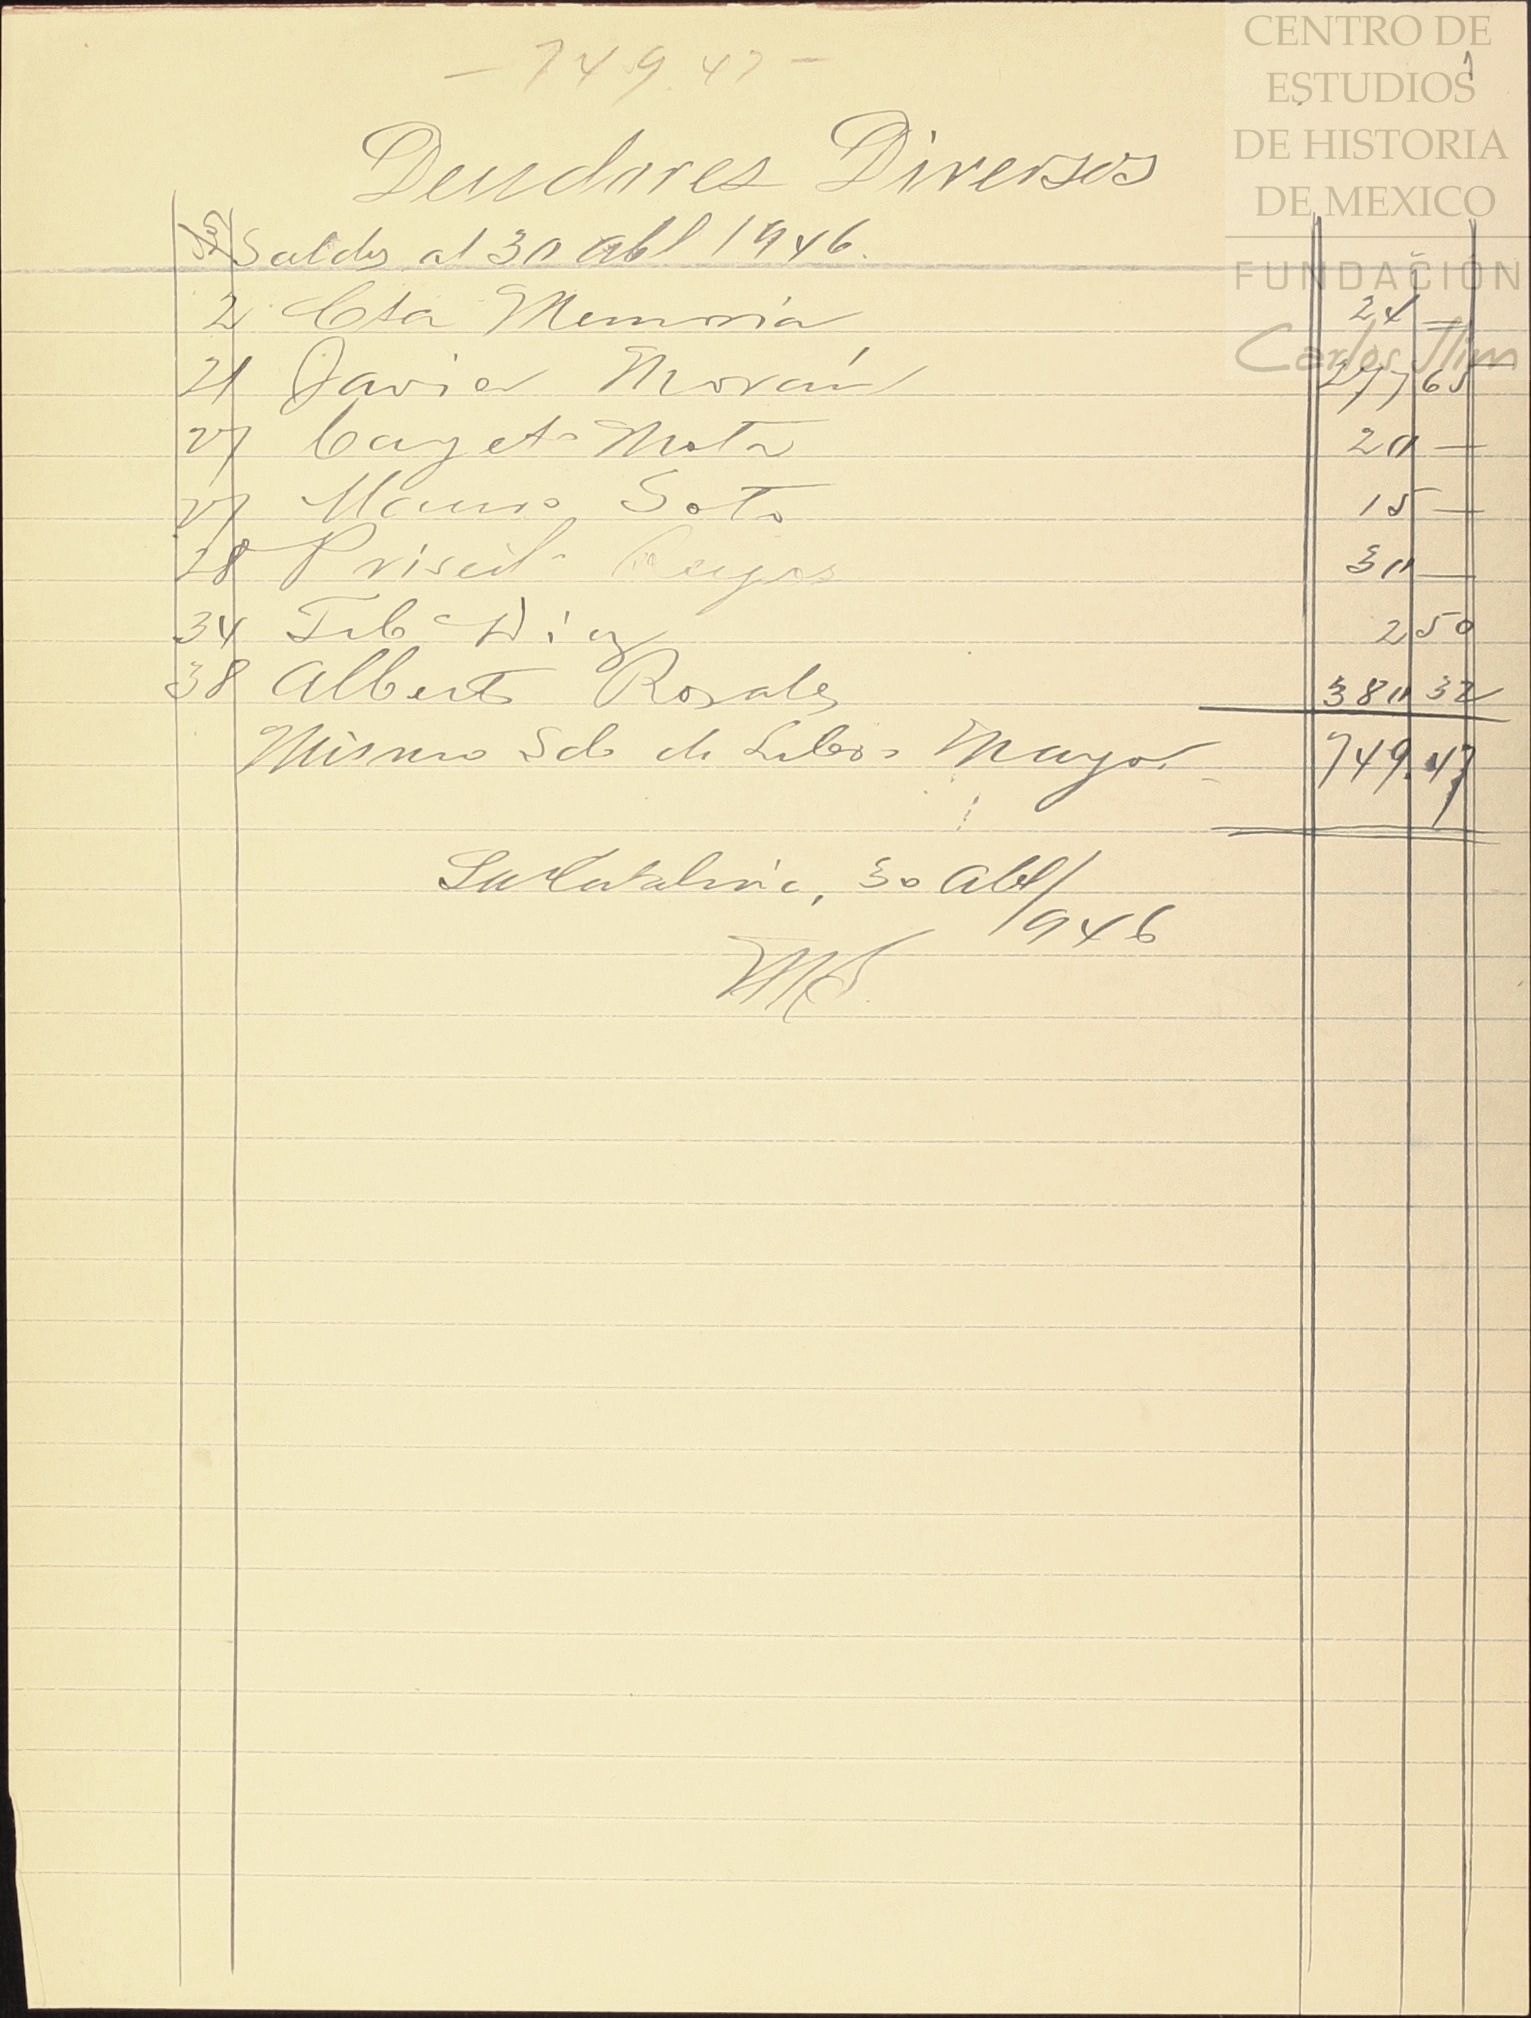 — 749.47 —
CENTRO DE
ESTUDIOS
DE HISTORIA
DE MEXICO
FUNDACIÓN
Carlos Slim
1
Deudores Diversos
Saldos al 30 Abl 1946.
2 Cta Memoria 24 —
21 Javier Morán 277 65
27 Cayet° Mota 20 —
27 Mauro Soto 15 —
28 Priscil° Reyes 30 —
34 Díaz 2 50
38 Alberto Rosales 380 32
Mismo Sdo de Libro Mayor 749.47
La Catalina, 30 Abl/
946